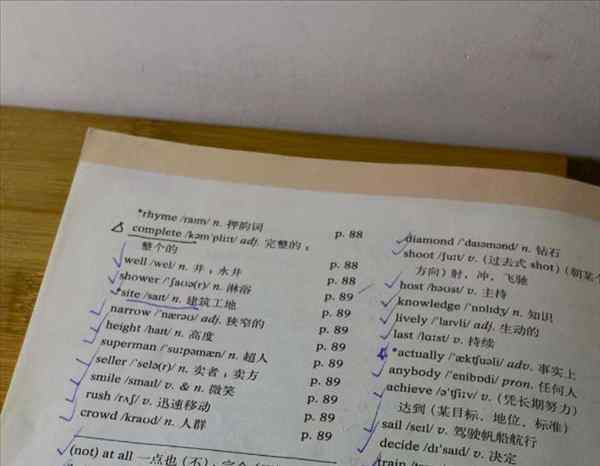 *rhyme /raɪm/ n. 押韵词 p. 88
complete /kəmˈpliːt/ adj. 完整的；
整个的 p. 88
well /wel/ n. 井；水井 p. 88
shower /ˈʃaʊə(r)/ n. 淋浴 p. 89
*site /saɪt/ n. 建筑工地 p. 89
narrow /ˈnærəʊ/ adj. 狭窄的 p. 89
height /haɪt/ n. 高度 p. 89
superman /ˈsuːpəmæn/ n. 超人 p. 89
seller /ˈselə(r)/ n. 卖者；卖方 p. 89
smile /smaɪl/ v. & n. 微笑 p. 89
rush /rʌʃ/ v. 迅速移动 p. 89
crowd /kraʊd/ n. 人群 p. 89
(not) at all 一点也（不）；完全
diamond /ˈdaɪəmənd/ n. 钻石
shoot /ʃuːt/ v. (过去式 shot)（朝某个
方向）射，冲，飞驰
host /həʊst/ v. 主持
knowledge /ˈnɒlɪdʒ/ n. 知识
lively /ˈlaɪvli/ adj. 生动的
last /lɑːst/ v. 持续
*actually /ˈæktʃuəli/ adv. 事实上
anybody /ˈenibɒdi/ pron. 任何人
achieve /əˈtʃiːv/ v.（凭长期努力）
达到（某目标、地位、标准）
sail /seɪl/ v. 驾驶帆船航行
decide /dɪˈsaɪd/ v. 决定